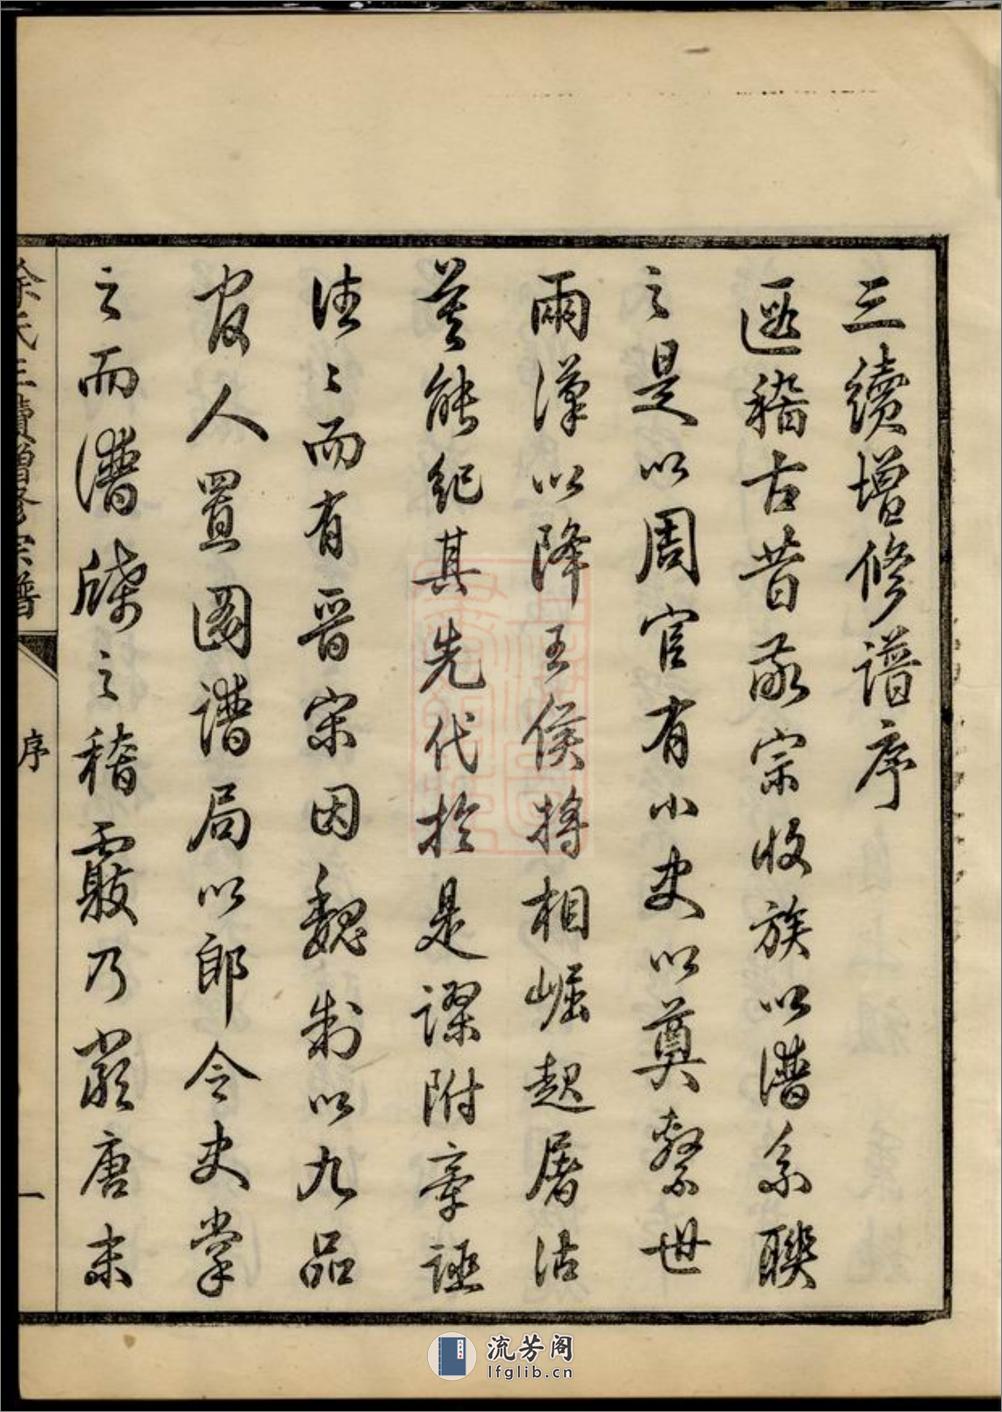 三續增修譜序
遝稽古昔敬宗收族以譜系聯
之是以周官有小史以奠繫世
兩漢以降王侯將相崛起屠沽
莫能紀其先代於是謬附牽誣
往〻而有晋宋因魏制以九品
官人置圖譜局以郎令史掌
之而譜牒之稽覈乃嚴唐末
徐氏三續增修宗譜
序
一
流芳阁
lfglib.cn